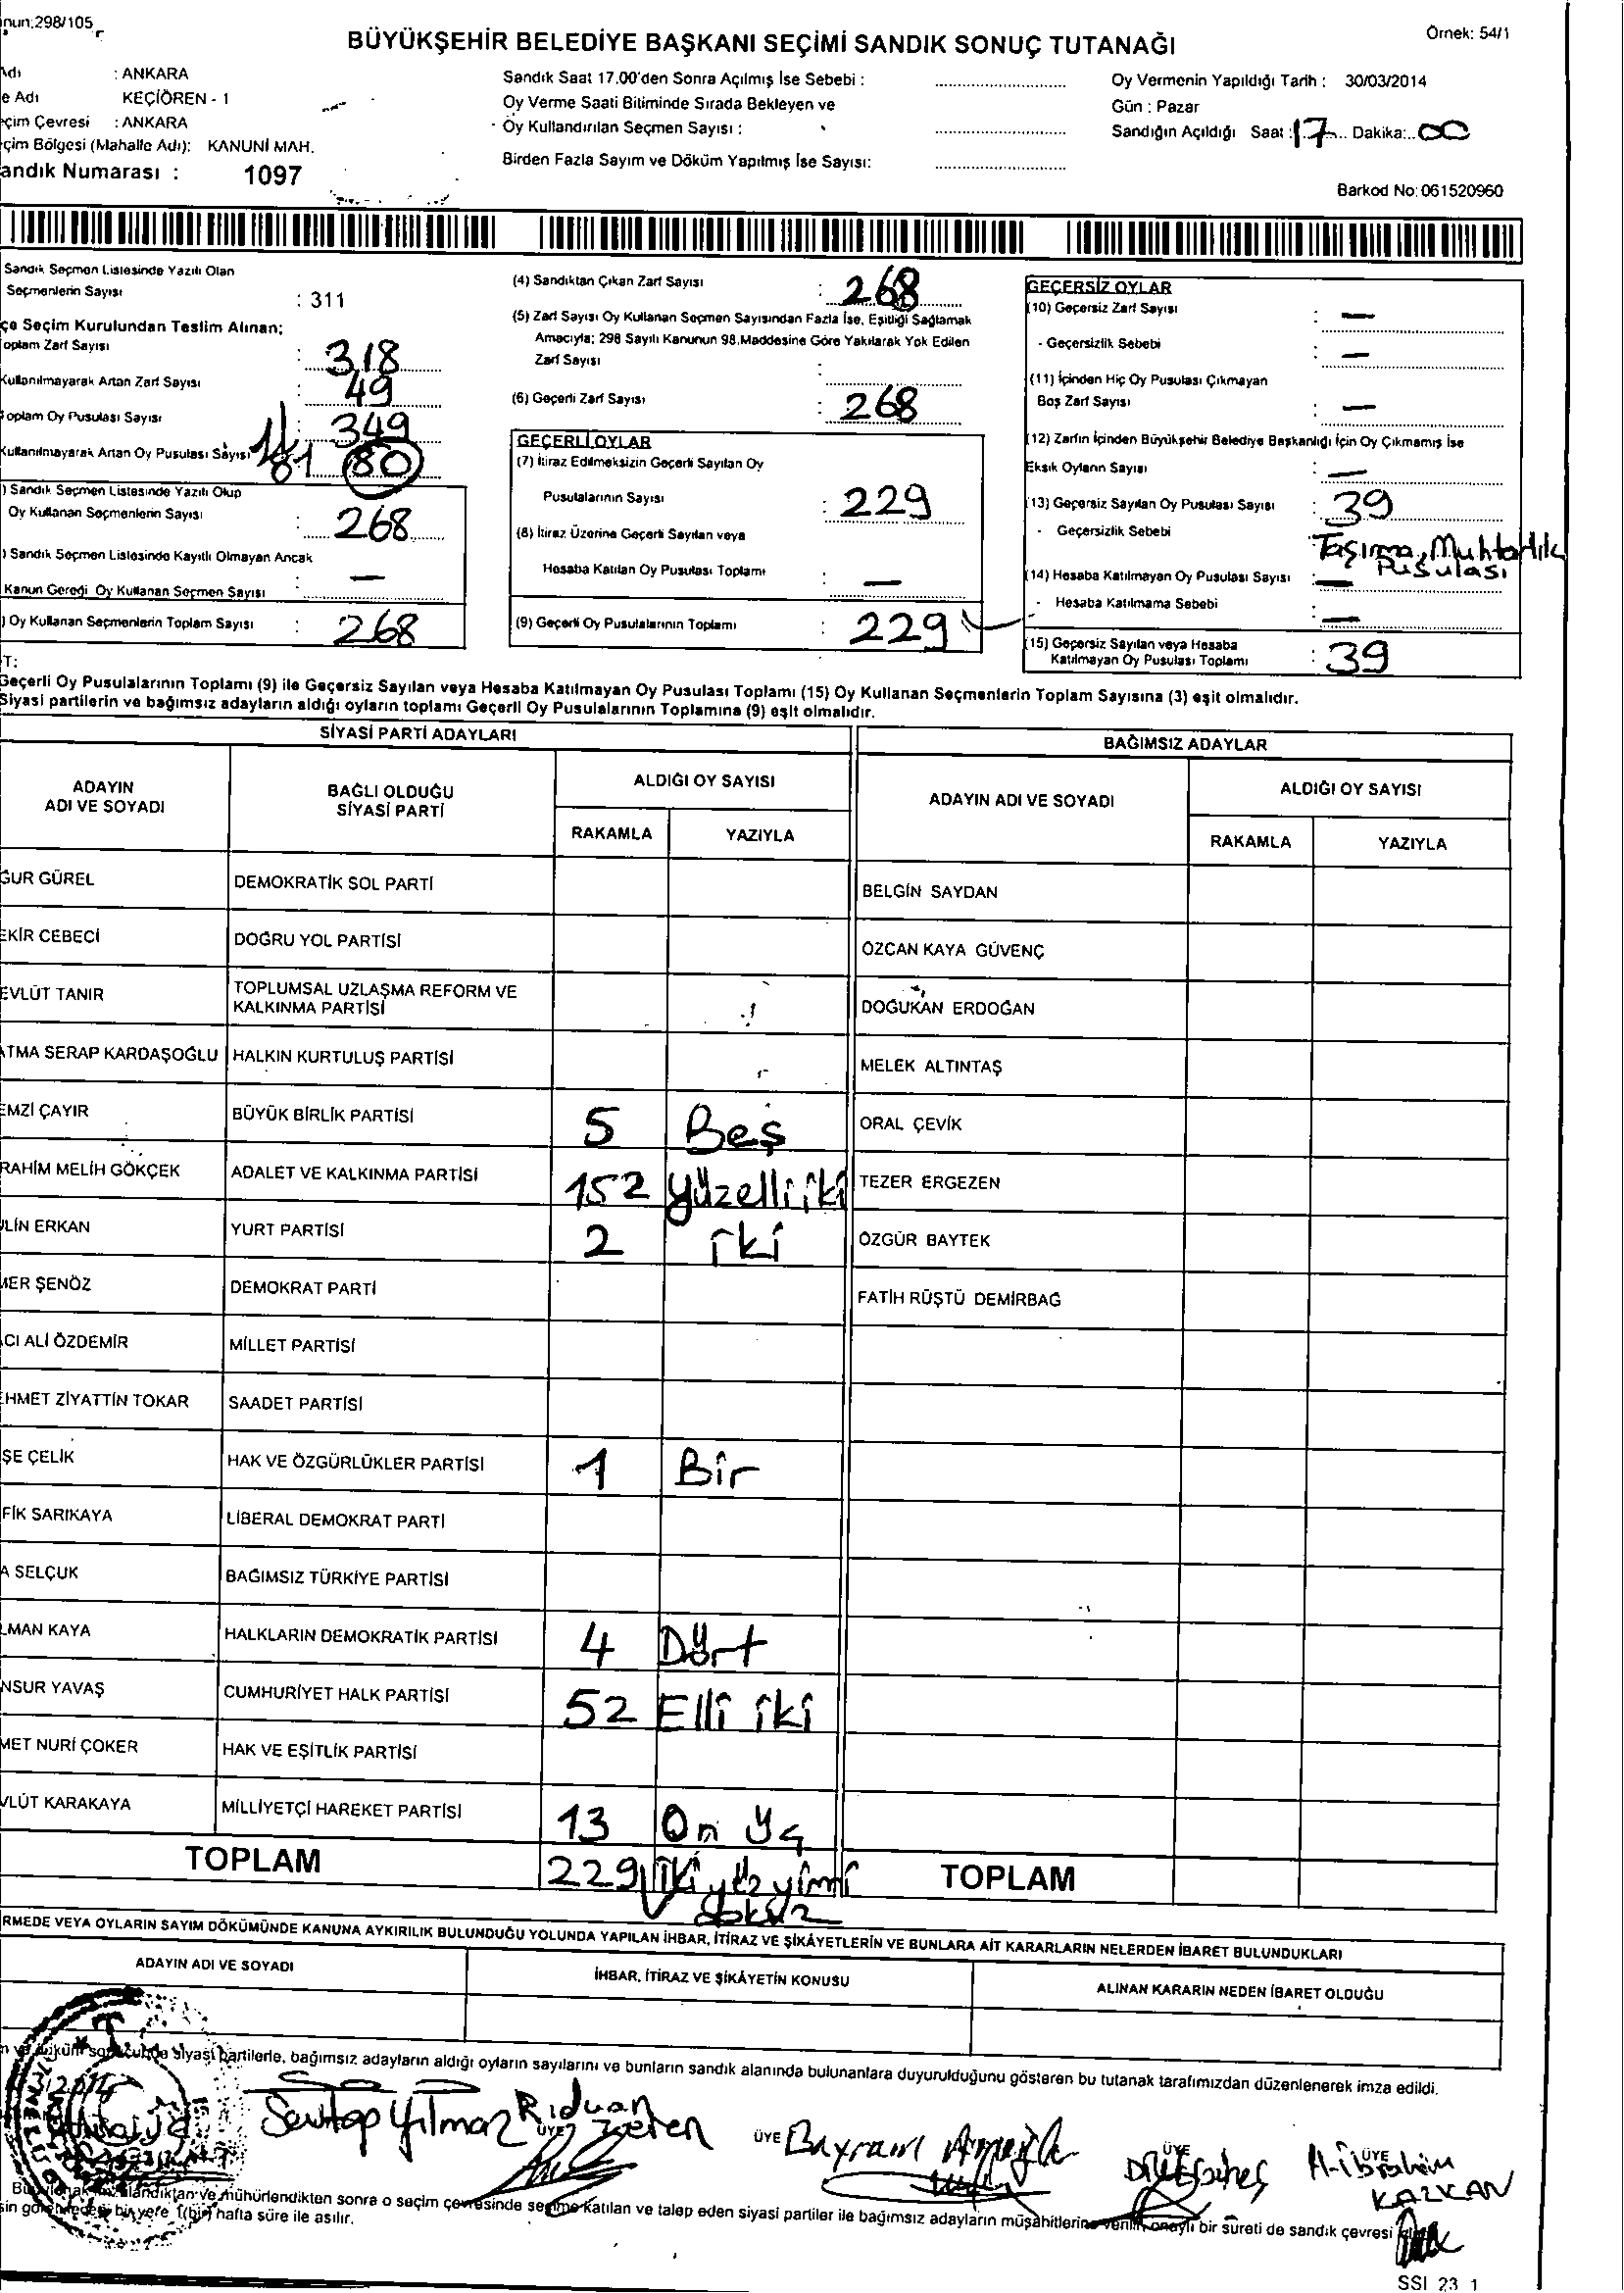 nun:298/105
Örnek: 54/1
BÜYÜKŞEHİR BELEDİYE BAŞKANI SEÇİMİ SANDIK SONUÇ TUTANAĞI
Adı : ANKARA
e Adı KEÇİÖREN - 1
eçim Çevresi : ANKARA
çim Bölgesi (Mahalle Adı): KANUNİ MAH.
andık Numarası : 1097
Sandık Saat 17.00'den Sonra Açılmış İse Sebebi :
Oy Verme Saati Bitiminde Sırada Bekleyen ve
Oy Kullandırılan Seçmen Sayısı :
Birden Fazla Sayım ve Döküm Yapılmış İse Sayısı:
Oy Vermenin Yapıldığı Tarih : 30/03/2014
Gün : Pazar
Sandığın Açıldığı Saat : 17 Dakika: 00
Barkod No: 061520960
Sandık Seçmen Listesinde Yazılı Olan
Seçmenlerin Sayısı : 311
çe Seçim Kurulundan Teslim Alınan;
oplam Zarf Sayısı : 318
Kullanılmayarak Artan Zarf Sayısı : 49
oplam Oy Pusulası Sayısı : 349
Kullanılmayarak Artan Oy Pusulası Sayısı 81 80
) Sandık Seçmen Listesinde Yazılı Olup
Oy Kullanan Seçmenlerin Sayısı : 268
) Sandık Seçmen Listesinde Kayıtlı Olmayan Ancak
Kanun Gereği Oy Kullanan Seçmen Sayısı : —
) Oy Kullanan Seçmenlerin Toplam Sayısı : 268
(4) Sandıktan Çıkan Zarf Sayısı : 268
(5) Zarf Sayısı Oy Kullanan Seçmen Sayısından Fazla İse, Eşitliği Sağlamak
Amacıyla; 298 Sayılı Kanunun 98.Maddesine Göre Yakılarak Yok Edilen
Zarf Sayısı :
(6) Geçerli Zarf Sayısı : 268
GEÇERLİ OYLAR
(7) İtiraz Edilmeksizin Geçerli Sayılan Oy
Pusulalarının Sayısı : 229
(8) İtiraz Üzerine Geçerli Sayılan veya
Hesaba Katılan Oy Pusulası Toplamı : —
(9) Geçerli Oy Pusulalarının Toplamı : 229
GEÇERSİZ OYLAR
(10) Geçersiz Zarf Sayısı : —
- Geçersizlik Sebebi : —
(11) İçinden Hiç Oy Pusulası Çıkmayan
Boş Zarf Sayısı : —
(12) Zarfın İçinden Büyükşehir Belediye Başkanlığı İçin Oy Çıkmamış İse
Eksik Oyların Sayısı : —
(13) Geçersiz Sayılan Oy Pusulası Sayısı : 39
- Geçersizlik Sebebi Taşırma, Muhtarlık
Pusulası
(14) Hesaba Katılmayan Oy Pusulası Sayısı : —
- Hesaba Katılmama Sebebi : —
(15) Geçersiz Sayılan veya Hesaba
Katılmayan Oy Pusulası Toplamı : 39
T:
Geçerli Oy Pusulalarının Toplamı (9) ile Geçersiz Sayılan veya Hesaba Katılmayan Oy Pusulası Toplamı (15) Oy Kullanan Seçmenlerin Toplam Sayısına (3) eşit olmalıdır.
Siyasi partilerin ve bağımsız adayların aldığı oyların toplamı Geçerli Oy Pusulalarının Toplamına (9) eşit olmalıdır.
SİYASİ PARTİ ADAYLARI
BAĞIMSIZ ADAYLAR
ADAYIN
ADI VE SOYADI
BAĞLI OLDUĞU
SİYASİ PARTİ
ALDIĞI OY SAYISI
RAKAMLA YAZIYLA
ADAYIN ADI VE SOYADI
ALDIĞI OY SAYISI
RAKAMLA YAZIYLA
ĞUR GÜREL DEMOKRATİK SOL PARTİ BELGİN SAYDAN
EKİR CEBECİ DOĞRU YOL PARTİSİ ÖZCAN KAYA GÜVENÇ
EVLÜT TANIR TOPLUMSAL UZLAŞMA REFORM VE
KALKINMA PARTİSİ DOĞUKAN ERDOĞAN
ATMA SERAP KARDAŞOĞLU HALKIN KURTULUŞ PARTİSİ MELEK ALTINTAŞ
EMZİ ÇAYIR BÜYÜK BİRLİK PARTİSİ 5 Beş ORAL ÇEVİK
RAHİM MELİH GÖKÇEK ADALET VE KALKINMA PARTİSİ 152 yüzelliiki TEZER ERGEZEN
LİN ERKAN YURT PARTİSİ 2 iki ÖZGÜR BAYTEK
MER ŞENÖZ DEMOKRAT PARTİ FATİH RÜŞTÜ DEMİRBAĞ
ACI ALİ ÖZDEMİR MİLLET PARTİSİ
EHMET ZİYATTİN TOKAR SAADET PARTİSİ
ŞE ÇELİK HAK VE ÖZGÜRLÜKLER PARTİSİ 1 Bir
FİK SARIKAYA LİBERAL DEMOKRAT PARTİ
A SELÇUK BAĞIMSIZ TÜRKİYE PARTİSİ
LMAN KAYA HALKLARIN DEMOKRATİK PARTİSİ 4 Dört
NSUR YAVAŞ CUMHURİYET HALK PARTİSİ 52 Elli iki
MET NURİ ÇOKER HAK VE EŞİTLİK PARTİSİ
VLÜT KARAKAYA MİLLİYETÇİ HAREKET PARTİSİ 13 On üç
TOPLAM 229 ikiyüzyimi
dokuz
TOPLAM
RMEDE VEYA OYLARIN SAYIM DÖKÜMÜNDE KANUNA AYKIRILIK BULUNDUĞU YOLUNDA YAPILAN İHBAR, İTİRAZ VE ŞİKÂYETLERİN VE BUNLARA AİT KARARLARIN NELERDEN İBARET BULUNDUKLARI
ADAYIN ADI VE SOYADI İHBAR, İTİRAZ VE ŞİKÂYETİN KONUSU ALINAN KARARIN NEDEN İBARET OLDUĞU
siyasi partilerle, bağımsız adayların aldığı oyların sayılarını ve bunların sandık alanında bulunanlara duyurulduğunu gösteren bu tutanak tarafımızdan düzenlenerek imza edildi.
Sevtap Yılmaz Rıduan
ÜYE Zeren
ÜYE Bayram
ÜYE
ÜYE H-ibrahim
KALKAN
mühürlendikten sonra o seçim çevresinde seçime katılan ve talep eden siyasi partiler ile bağımsız adayların müşahitlerine verilir, onaylı bir sureti de sandık çevresi
bir yere 1(bir) hafta süre ile asılır.
SSI 23 1